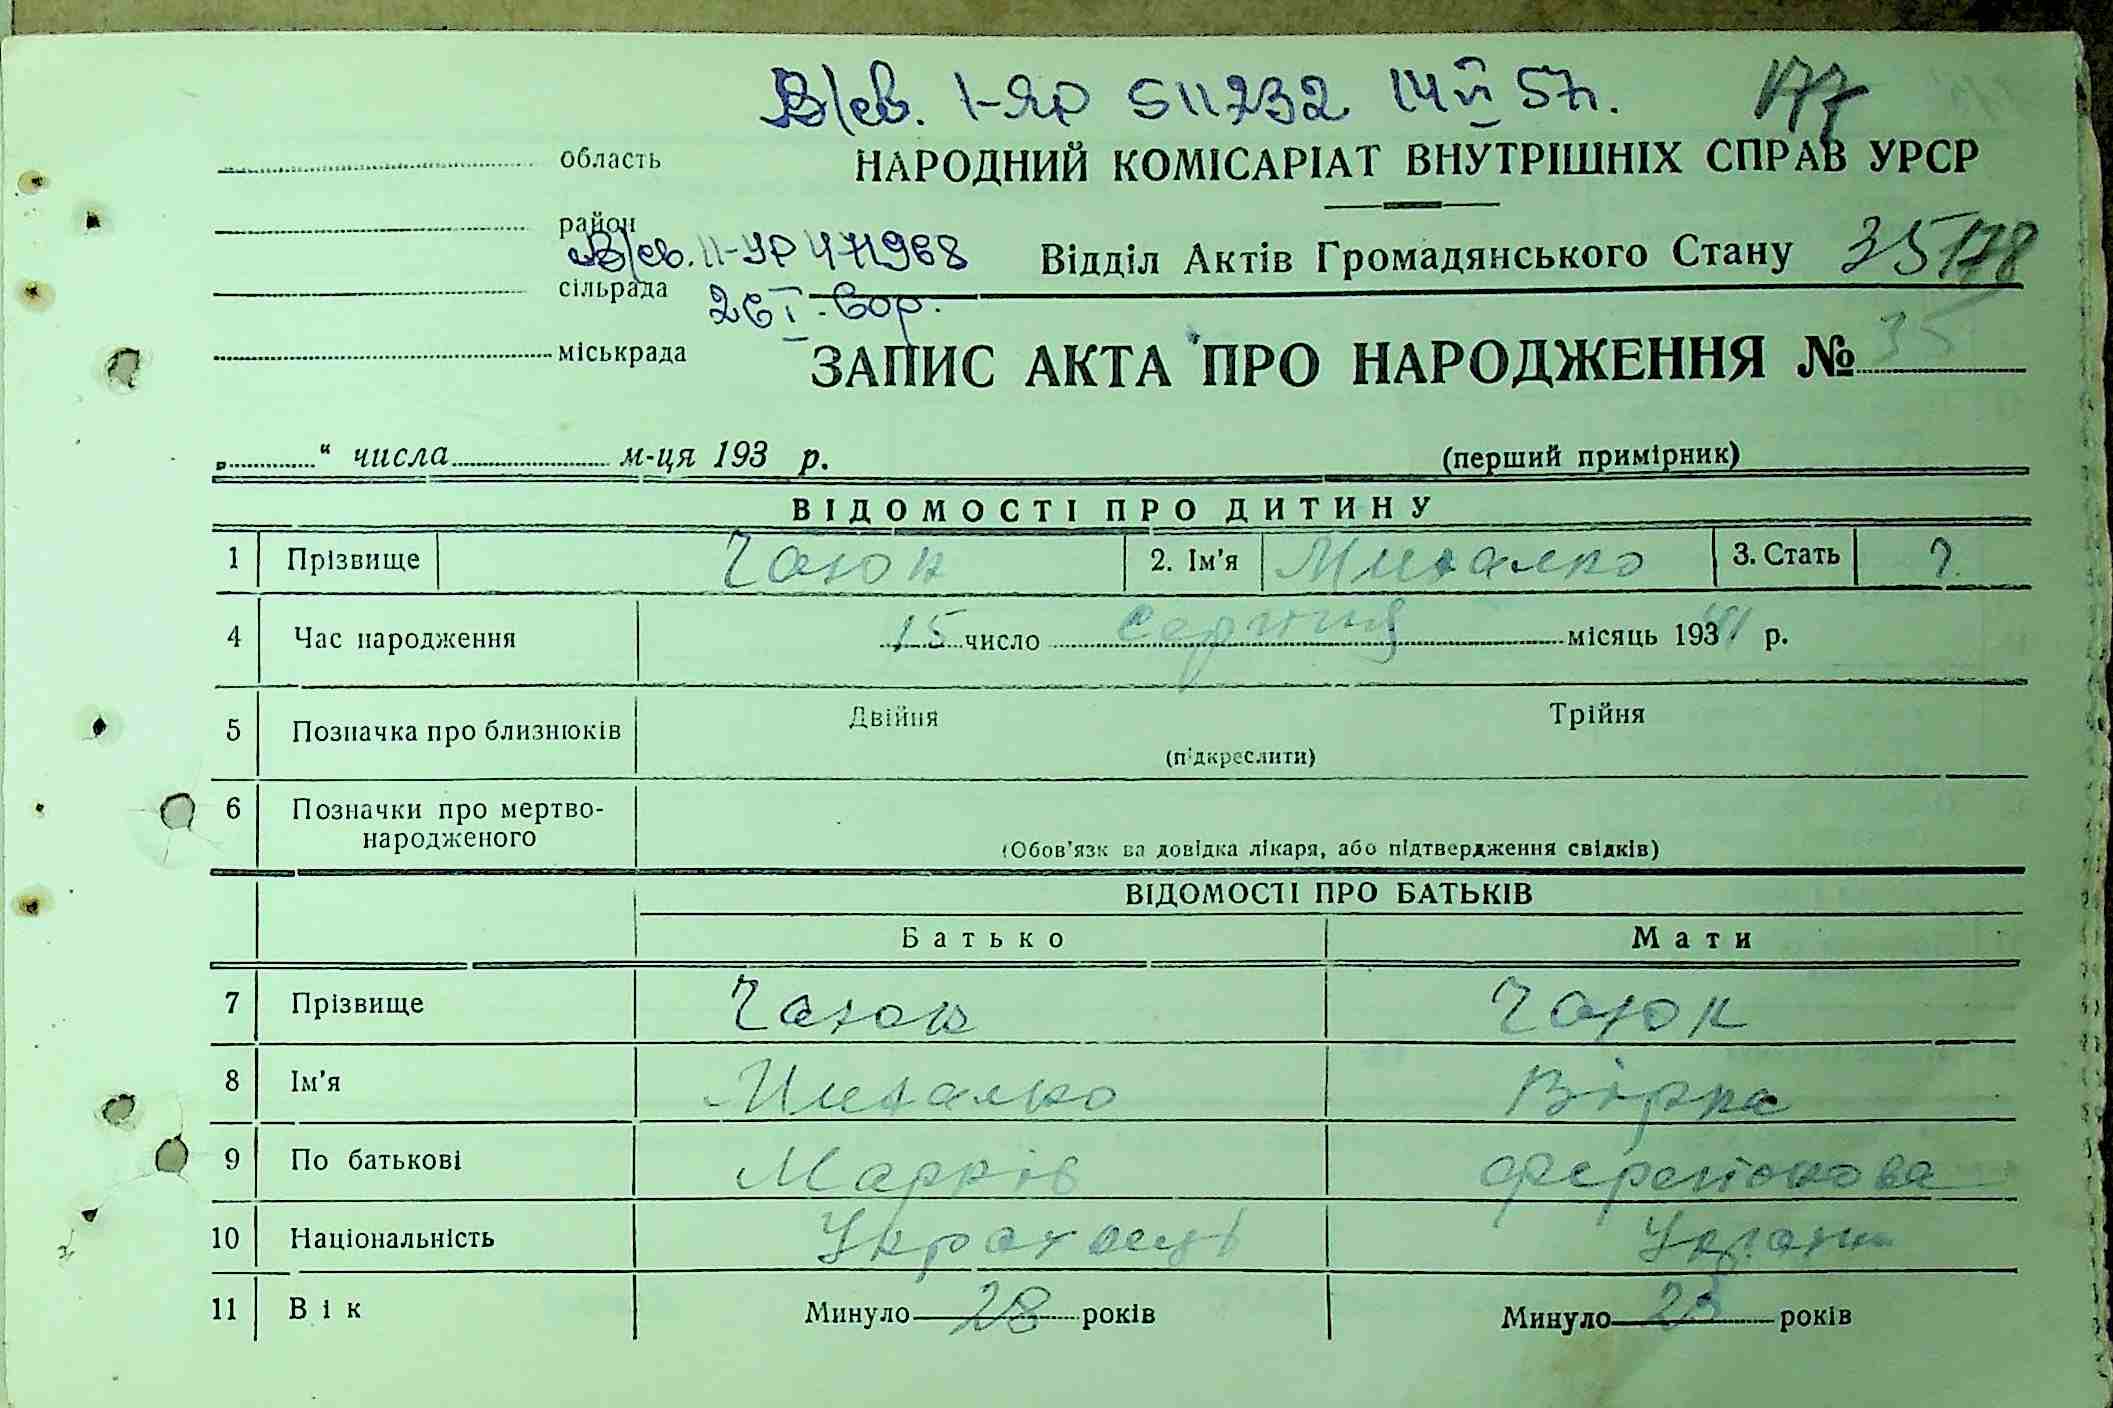 В/св. І-ЯР 511232 14 VI 57р. 177
область НАРОДНИЙ КОМІСАРІАТ ВНУТРІШНІХ СПРАВ УРСР
район
В/св. ІІ-УР 471968 Відділ Актів Громадянського Стану
сільрада
міськрада ЗАПИС АКТА ПРО НАРОДЖЕННЯ № 35
„ “ числа м-ця 193 р. (перший примірник)
ВІДОМОСТІ ПРО ДИТИНУ
1 Прізвище 2. Ім'я Михалко 3. Стать Ч.
4 Час народження 15 число серпня місяць 193 р.
5 Позначка про близнюків Двійня Трійня
(підкреслити)
6 Позначки про мертво-
народженого
(Обов'язк ва довідка лікаря, або підтвердження свідків)
ВІДОМОСТІ ПРО БАТЬКІВ
Батько Мати
7 Прізвище
8 Ім'я Михалко
9 По батькові Марків
10 Національність
11 Вік Минуло 28 років Минуло 23 років